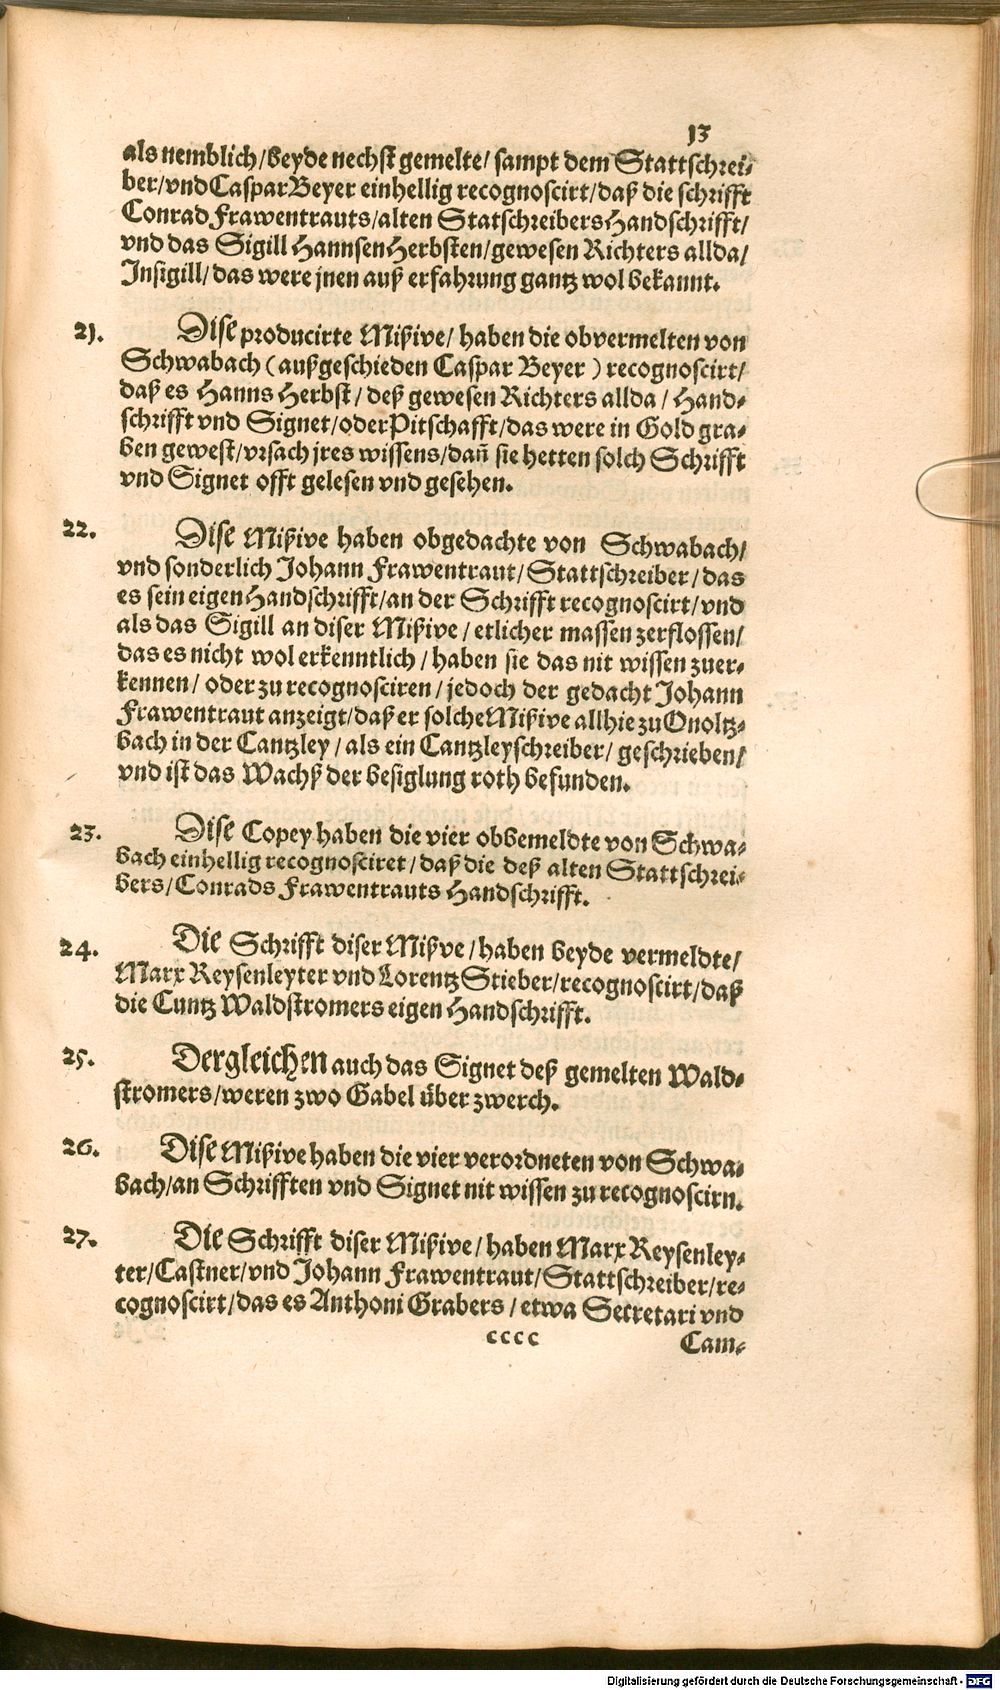 13
als nemblich/beyde nechst gemelte/ sampt dem Stattschrei-
ber/vnd Caspar Beyer einhellig recognoscirt/daß die schrifft
Conrad Frawentrauts/alten Statschreibers Handschrifft/
vnd das Sigill Hannsen Herbsten/gewesen Richters allda/
Insigill/das were jnen auß erfahrung gantz wol bekannt.
21. Dise producirte Mißive/ haben die obvermelten von
Schwabach (außgeschieden Caspar Beyer) recognoscirt/
daß es Hanns Herbst/ deß gewesen Richters allda/ Hand-
schrifft vnd Signet/oder Pitschafft/das were in Gold gra-
ben gewest/vrsach jres wissens/dañ sie hetten solch Schrifft
vnd Signet offt gelesen vnd gesehen.
22. Dise Mißive haben obgedachte von Schwabach/
vnd sonderlich Johann Frawentraut/Stattschreiber/das
es sein eigen Handschrifft/an der Schrifft recognoscirt/vnd
als das Sigill an diser Mißive/etlicher massen zerflossen/
das es nicht wol erkenntlich/haben sie das nit wissen zuer-
kennen/ oder zu recognosciren/jedoch der gedacht Johann
Frawentraut anzeigt/daß er solche Mißive allhie zu Onoltz-
bach in der Cantzley/als ein Cantzleyschreiber/geschrieben/
vnd ist das Wachß der besiglung roth befunden.
23. Dise Copey haben die vier obbemeldte von Schwa-
bach einhellig recognosciret/daß die deß alten Stattschrei-
bers/Conrads Frawentrauts Handschrifft.
24. Die Schrifft diser Mißve/haben beyde vermeldte/
Marx Reysenleyter vnd Lorentz Stieber/recognoscirt/daß
die Cuntz Waldstromers eigen Handschrifft.
25. Dergleichen auch das Signet deß gemelten Wald-
stromers/weren zwo Gabel über zwerch.
26. Dise Mißive haben die vier verordneten von Schwa-
bach/an Schrifften vnd Signet nit wissen zu recognoscirn.
27. Die Schrifft diser Mißive/haben Marx Reysenley-
ter/Castner/vnd Johann Frawentraut/Stattschreiber/re-
cognoscirt/das es Anthoni Grabers/etwa Secretari vnd
cccc Cam-
Digitalisierung gefördert durch die Deutsche Forschungsgemeinschaft - DFG